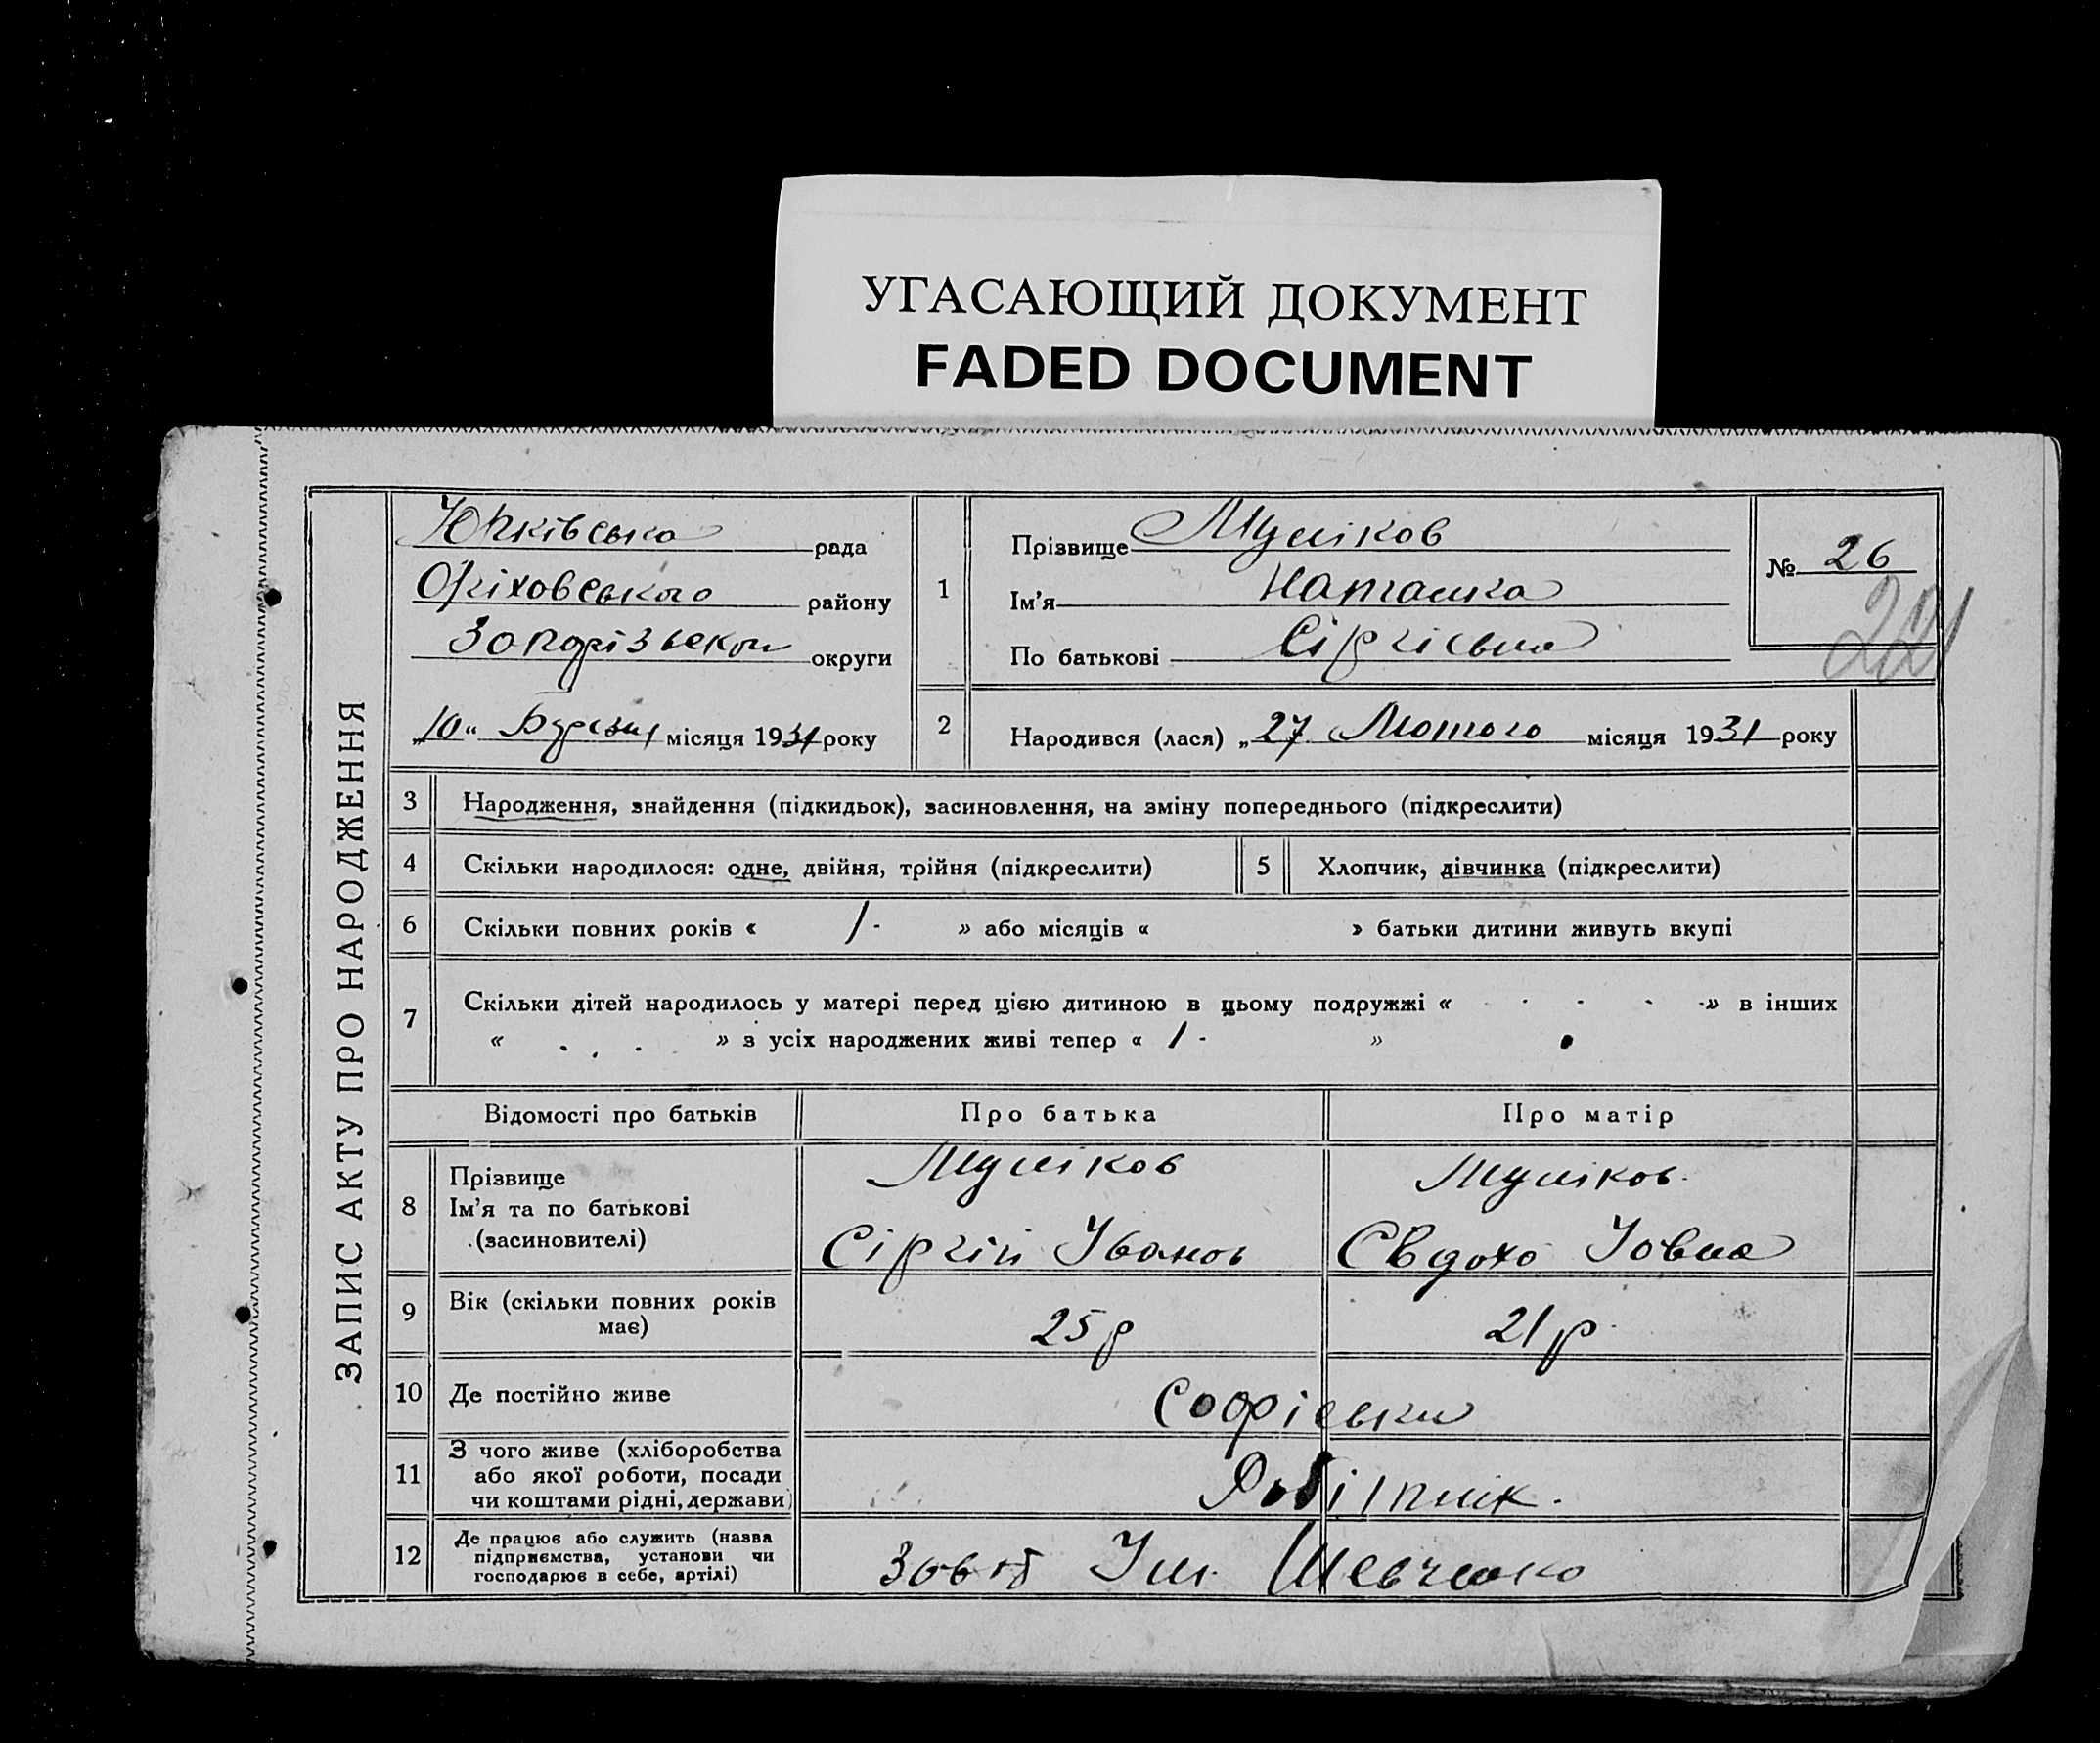 УГАСАЮЩИЙ ДОКУМЕНТ
FADED DOCUMENT
ЗАПИС АКТУ ПРО НАРОДЖЕННЯ
Юрківсько рада
Оріховського району
Запорізької округи
„10" Березня місяця 1931 року
1
Прізвище Муліков
Ім'я Наталка
По батькові Сіргієвна
№ 26
221
2 Народився (лася) „27 Лютого місяця 1931 року
3 Народження, знайдення (підкидьок), засиновлення, на зміну попереднього (підкреслити)
4 Скільки народилося: одне, двійня, трійня (підкреслити) 5 Хлопчик, дівчинка (підкреслити)
6 Скільки повних років « 1- » або місяців « » батьки дитини живуть вкупі
7 Скільки дітей народилось у матері перед цією дитиною в цьому подружжі « - - - -» в інших
« . . . » з усіх народжених живі тепер « 1 - »
Відомості про батьків Про батька Про матір
8 Прізвище
Ім'я та по батькові
(засиновителі)
Муліков
Сіргій Іванов
Муліков.
Євдоха Іовна
9 Вік (скільки повних років
має)
25 р
21 р.
10 Де постійно живе Софієвки
11 З чого живе (хліборобства
або якої роботи, посади
чи коштами рідні, держави)
Робітник.
12 Де працює або служить (назва
підприємства, установи чи
господарює в себе, артілі)
Завод Ім. Шевченко